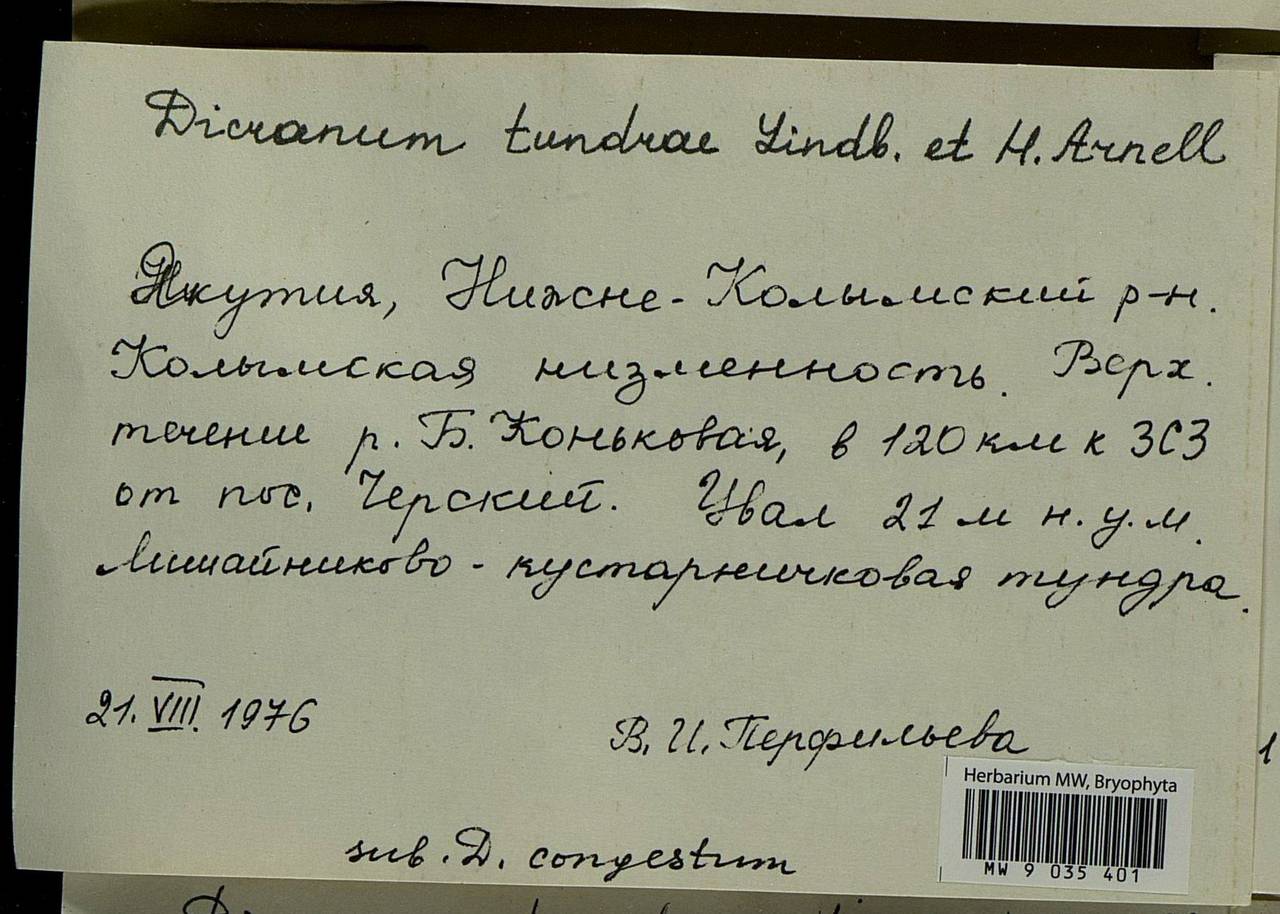 Dicranum tundrae Lindb. et H. Arnell
Якутия, Нижне-Колымский р-н.
Колымская низменность. Верх.
течение р. Б. Коньковая, в 120 км к ЗСЗ
от пос. Черский. Увал 21 м н. у. м.
Лишайниково-кустарничковая тундра.
21. VIII. 1976
В. И. Перфильева
Herbarium MW, Bryophyta
MW 9 035 401
sub. D. congestum